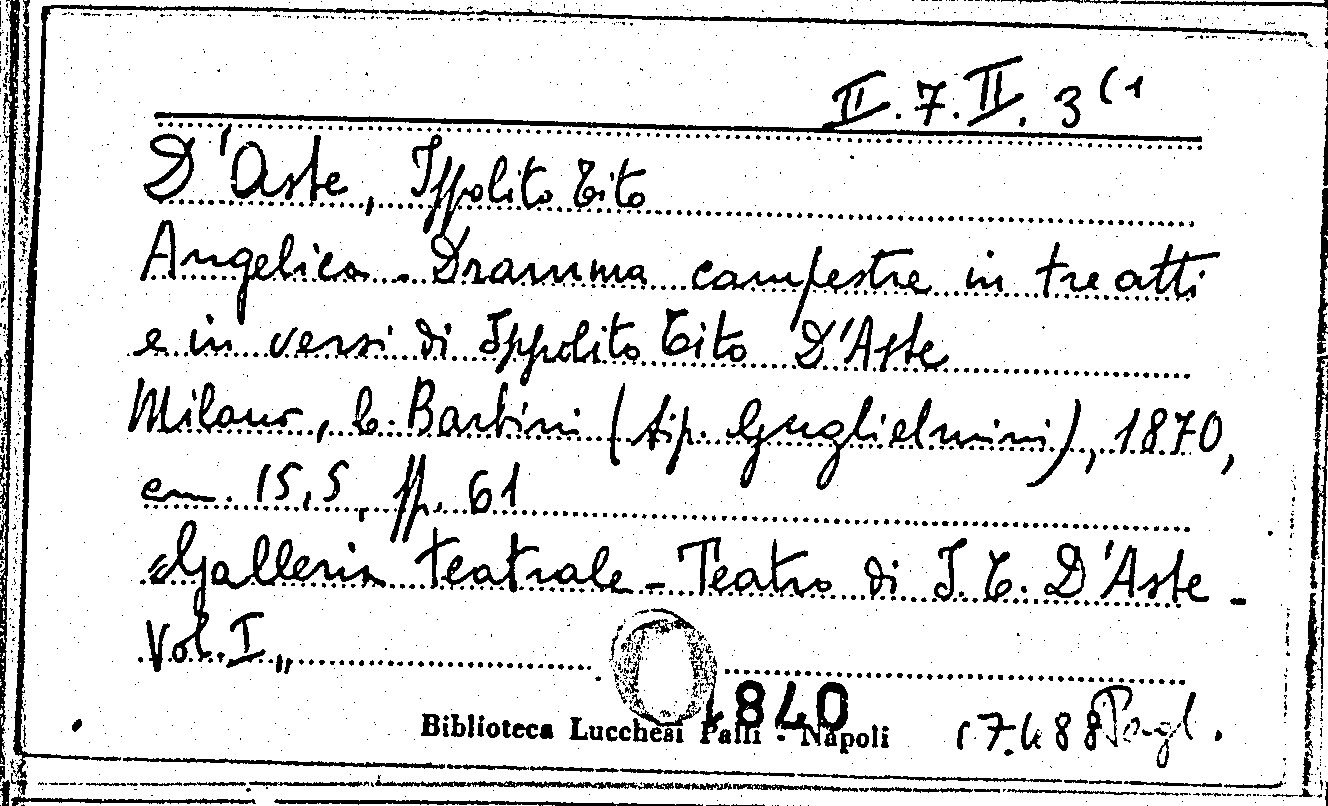 II.7.II.3(1
D'Aste, Ippolito Tito
Angelica - Dramma campestre in tre atti
e in versi di Ippolito Tito D'Aste
Milano, C. Barbini (tip. Guglielmini), 1870,
cm. 15,5, pp. 61
"Galleria teatrale - Teatro di I. T. D'Aste -
Vol. I"
1840
Biblioteca Lucchesi Palli - Napoli